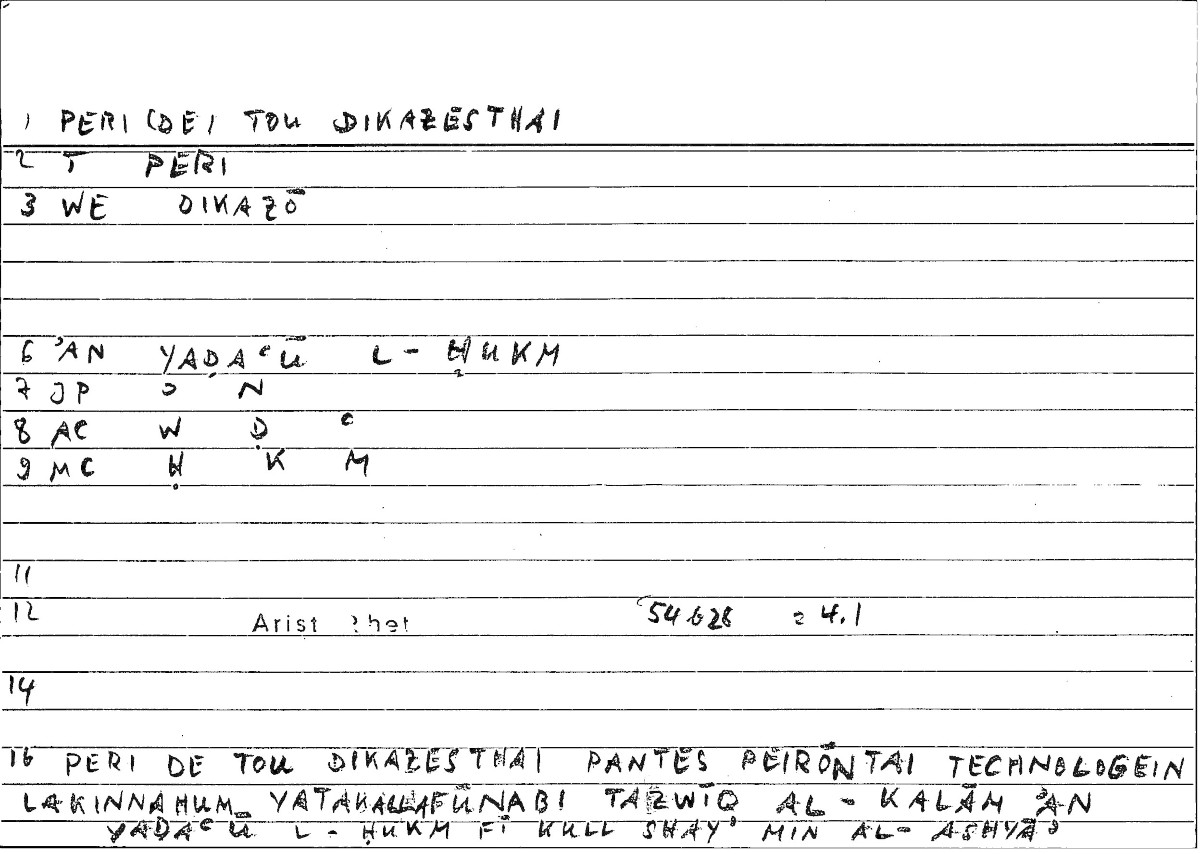 1 PERI (DE) TOU DIKAZESTHAI
2 T PERI
3 WE DIKAZŌ
6 ʾAN YAḌAʿŪ L-ḤUKM
7 JP ʾ N
8 AC W Ḍ ʿ
9 MC Ḥ K M
11
12 Arist Rhet 54b28 = 4.1
14
16 PERI DE TOU DIKAZESTHAI PANTES PEIRŌNTAI TECHNOLOGEIN
LAKINNAHUM YATAKALLAFŪNABI TAZWĪQ AL-KALĀM ʾAN
YAḌAʿŪ L-ḤUKM FĪ KULL SHAYʾ MIN AL-ASHYĀʾ